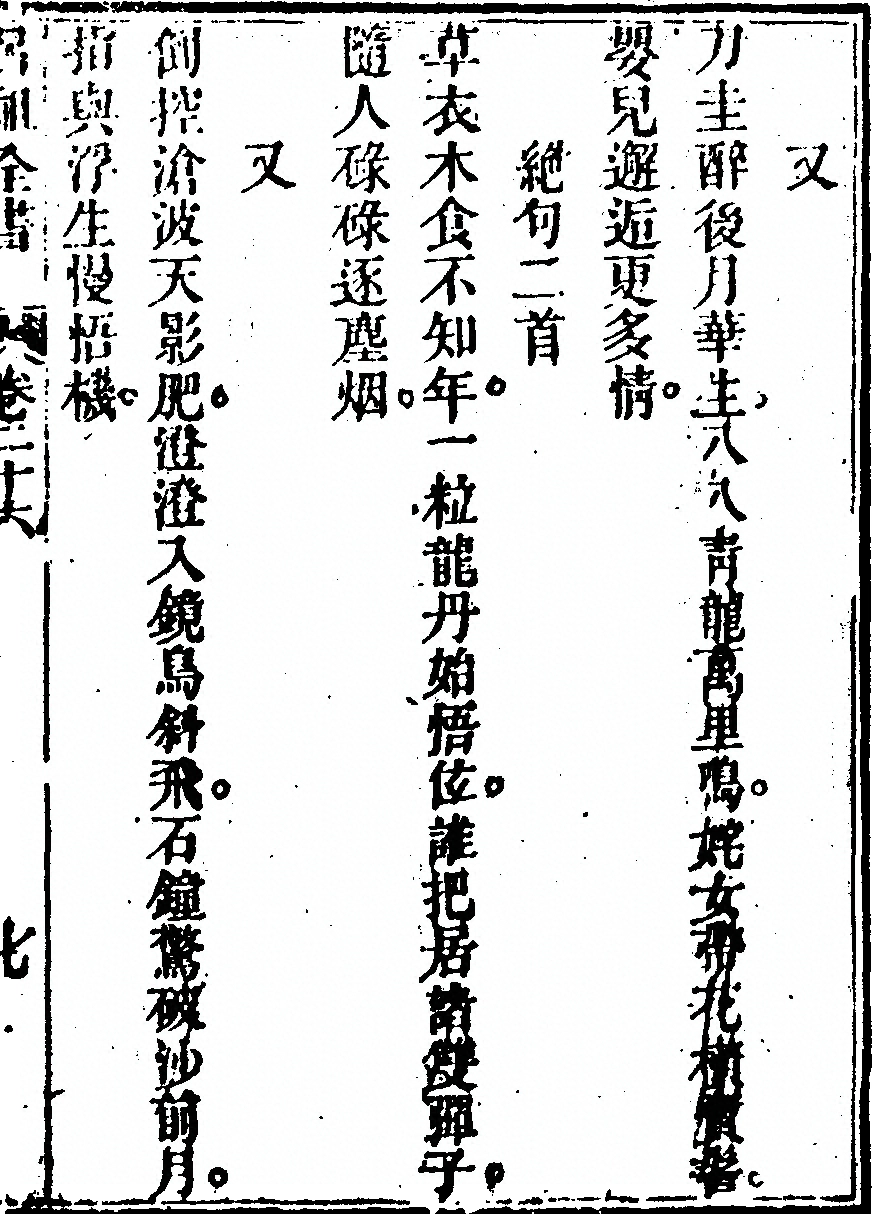 又
刀圭醉後月華生八八青龍萬里鳴姹女帶花橫寶髻
嬰兒邂逅更多情
絕句二首
草衣木食不知年一粒龍丹始悟佺誰把居諸雙彈子
隨人碌碌逐塵烟
又
倒控滄波天影肥澄澄入鏡鳥斜飛石鐘驚破沙前月
指與浮生慢悟機
呂祖全書 卷二十六 七